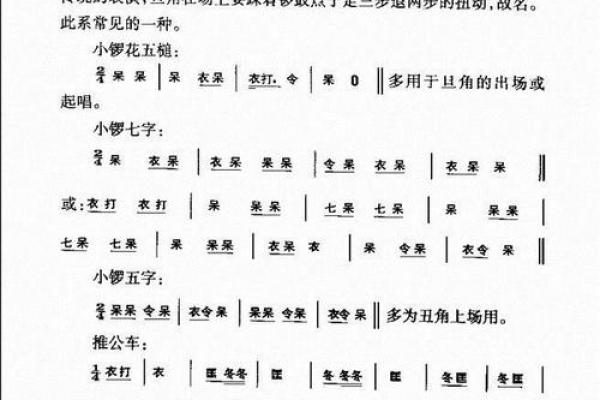 此系常见的一种。
小锣花五槌:
2/4 呆 呆 | 呆 衣呆 | 衣打. 令 | 呆 0 ‖ 多用于旦角的出场或
起唱。
小锣七字:
2/4 呆 衣呆 | 衣呆 呆呆 | 令呆 衣呆 | 衣呆 呆 ‖
或: 衣打 衣打 | 呆 呆呆 | 七呆 七呆 | 呆 呆呆 |
七呆 七呆 | 呆 呆呆 | 衣呆 衣 | 呆 令呆 | 衣令 呆 ‖
小锣五字:
2/4 呆呆 令呆 | 衣令 呆 | 呆呆 令呆 | 衣令 呆 ‖ 多为丑角上场用。
推公车:
1/4 衣打 | 衣 | 匡冬冬 | 匡 | 冬冬冬 | 匡 | 冬匡 | 冬匡 |